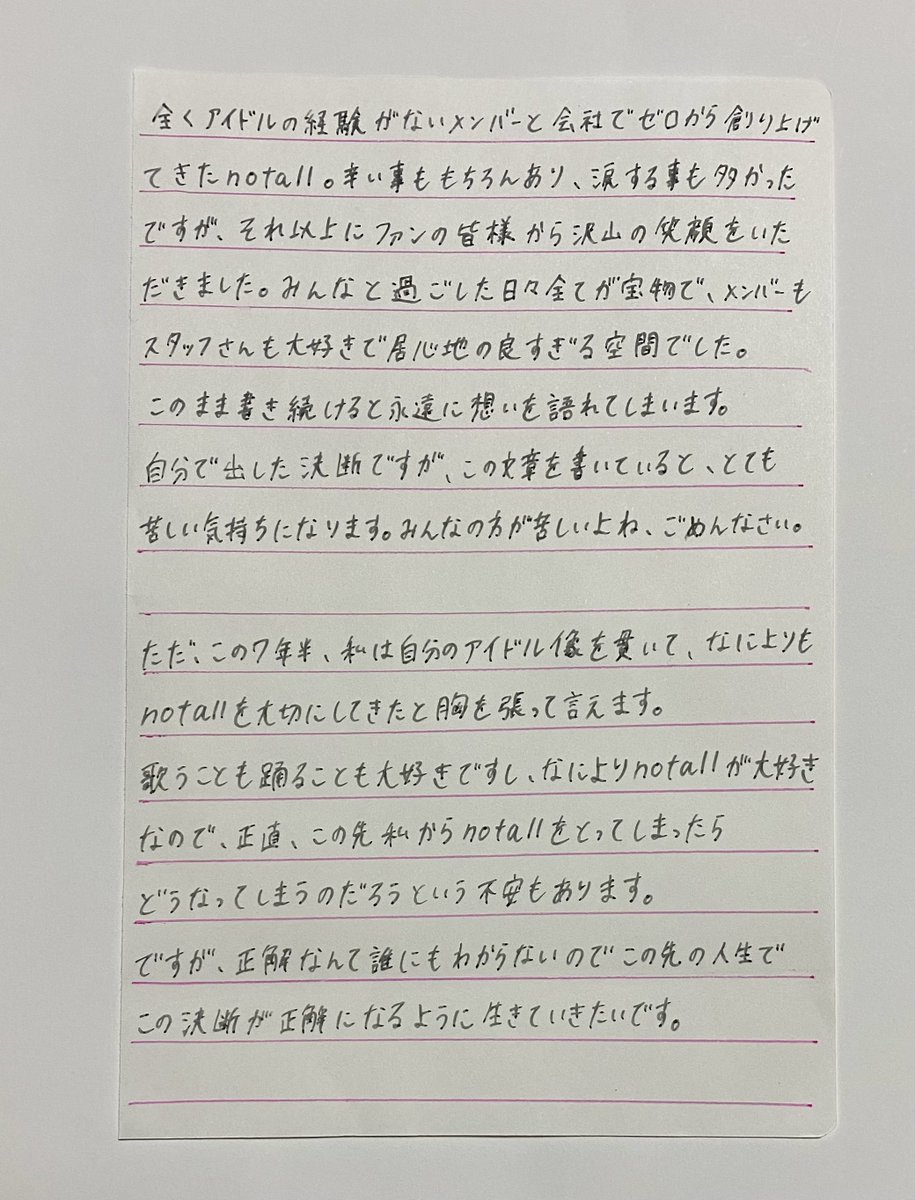 全くアイドルの経験がないメンバーと会社でゼロから創り上げ
てきたnotall。辛い事ももちろんあり、涙する事も多かった
ですが、それ以上にファンの皆様から沢山の笑顔をいた
だきました。みんなと過ごした日々全てが宝物で、メンバーも
スタッフさんも大好きで居心地の良すぎる空間でした。
このまま書き続けると永遠に想いを語れてしまいます。
自分で出した決断ですが、この文章を書いていると、とても
苦しい気持ちになります。みんなの方が苦しいよね、ごめんなさい。
ただ、この7年半、私は自分のアイドル像を貫いて、なによりも
notallを大切にしてきたと胸を張って言えます。
歌うことも踊ることも大好きですし、なによりnotallが大好き
なので、正直、この先私からnotallをとってしまったら
どうなってしまうのだろうという不安もあります。
ですが、正解なんて誰にもわからないのでこの先の人生で
この決断が正解になるように生きていきたいです。